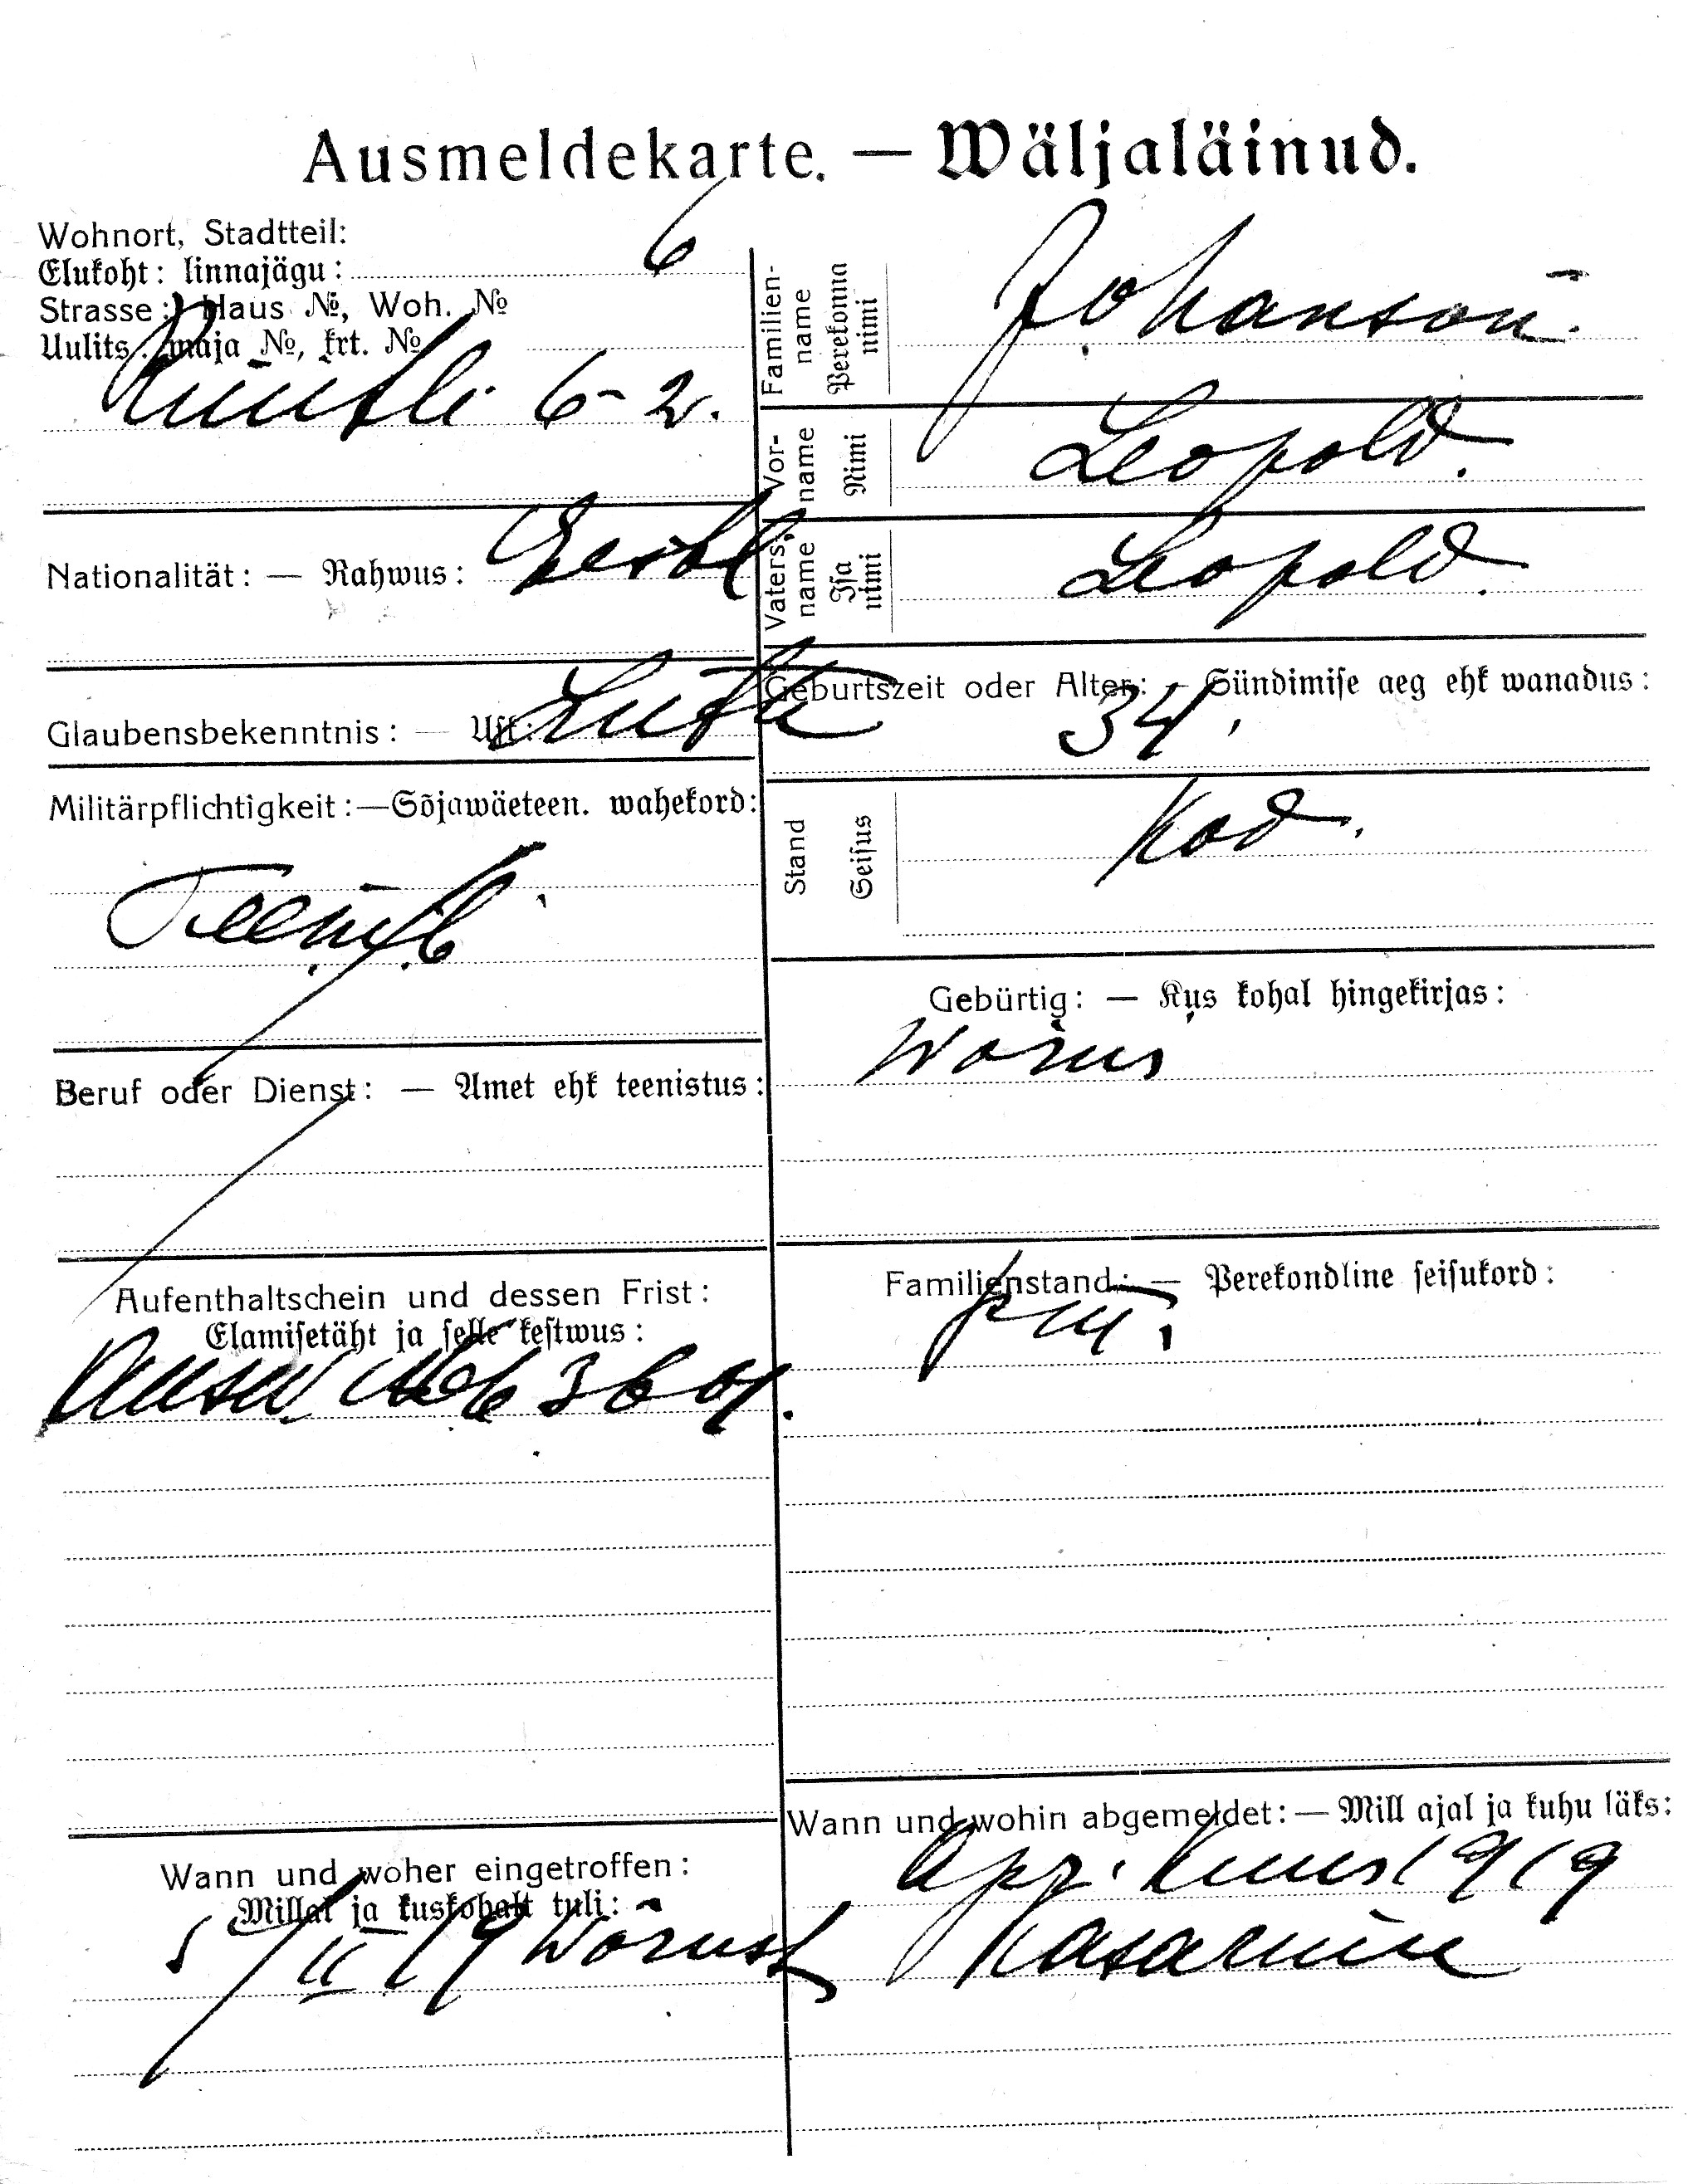 Ausmeldekarte. — Wäljaläinud.
Wohnort, Stadtteil:
Elukoht: linnajägu: 6
Strasse: Haus №, Woh. №
Uulits, maja №, krt. №
Rüütli 6-2.
Nationalität: — Rahwus: Eestl
Glaubensbekenntnis: — Usk: Luth
Militärpflichtigkeit: — Sõjawäeteen. wahekord:
Beruf oder Dienst: — Amet ehk teenistus:
Aufenthaltschein und dessen Frist:
Elamisetäht ja selle kestwus:
№ 63601.
Wann und woher eingetroffen:
Millal ja kuskohalt tuli:
5/II 19 Wõrust
Familien-
name
Perekonna
nimi
Johanson.
Vor-
name
Nimi
Leopold.
Vaters-
name
Isa
nimi
Leopold.
Geburtszeit oder Alter: — Sündimise aeg ehk wanadus:
34.
Stand
Seisus
Kod.
Gebürtig: — Kus kohal hingekirjas:
Wõrus
Familienstand: — Perekondline seisukord:
Wann und wohin abgemeldet: — Mill ajal ja kuhu läks:
Apr. kuus 1919
Kasarmu